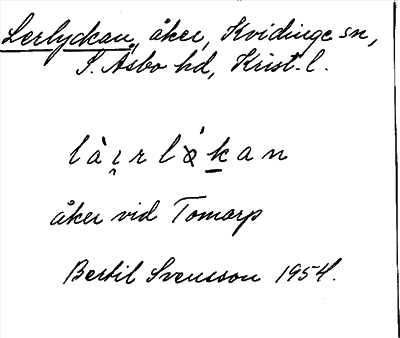 Lerlyckan, åker, Kvidinge sn,
S. Åsbo hd, Krist. l.
làı̯rlǿkan
åker vid Tomarp
Bertil Svensson 1954.